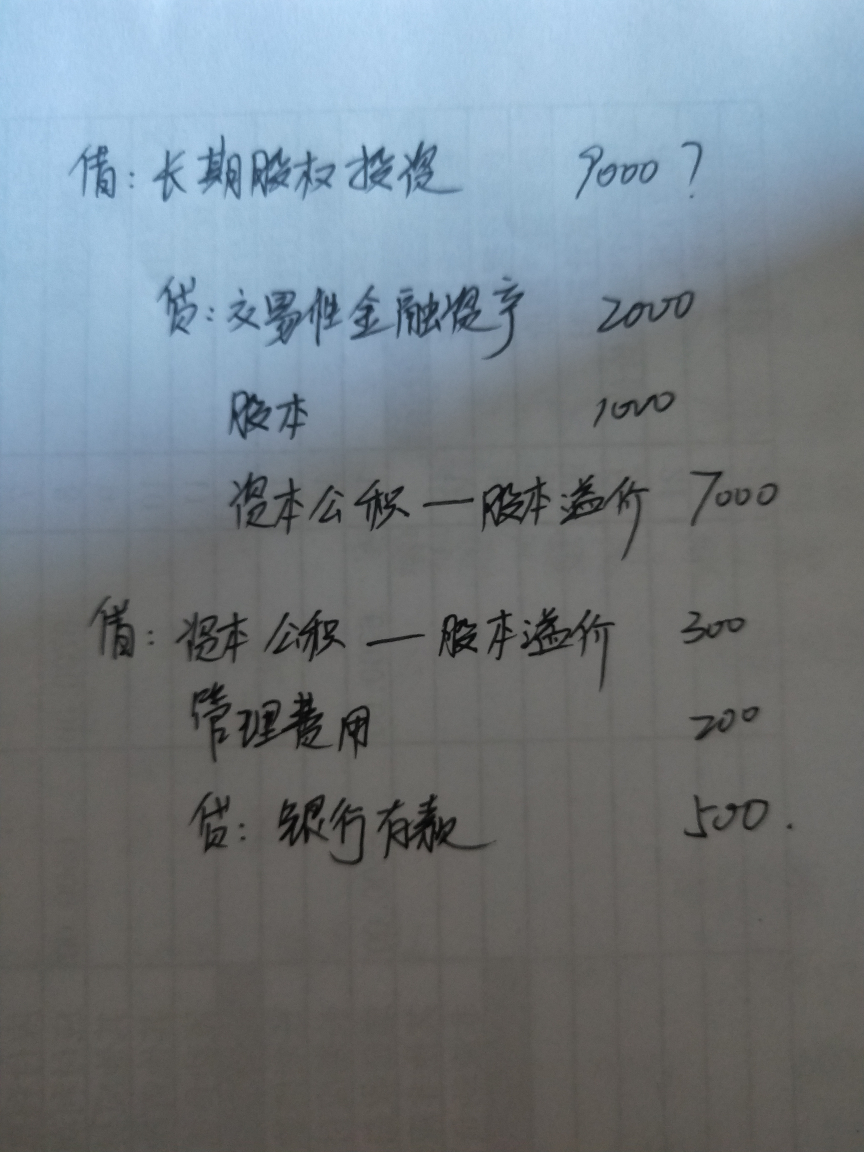 借：长期股权投资 9000？
贷：交易性金融资产 2000
股本 1000
资本公积—股本溢价 7000
借：资本公积—股本溢价 300
管理费用 200
贷：银行存款 500.